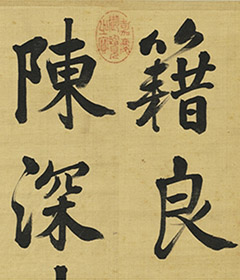 籍良
陳深